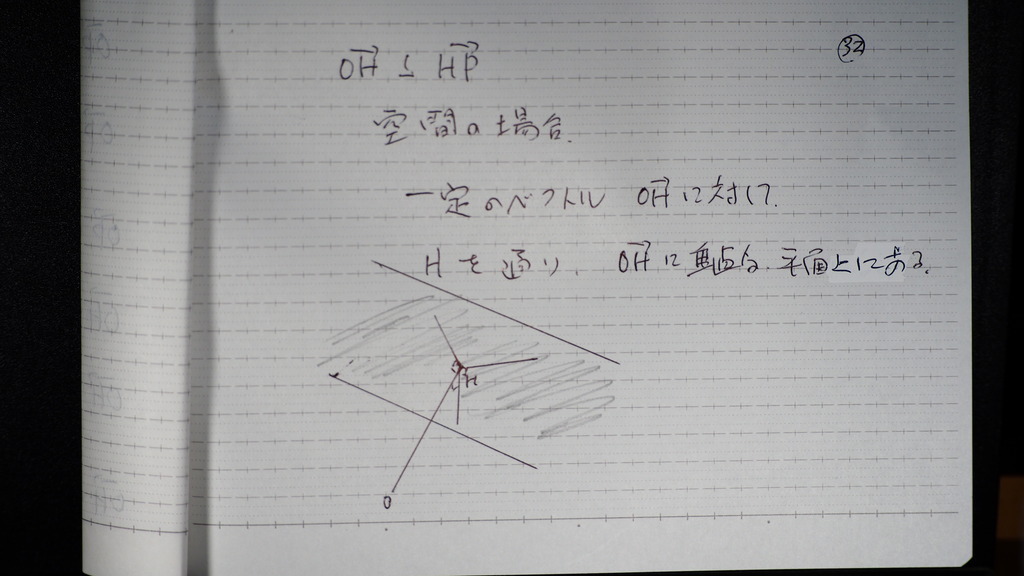 ㉜
OH→ ⊥ HP→
空間の場合.
一定のベクトル OH→ に対して.
Hを通り、OH→ に垂直な平面上にある.
H
O